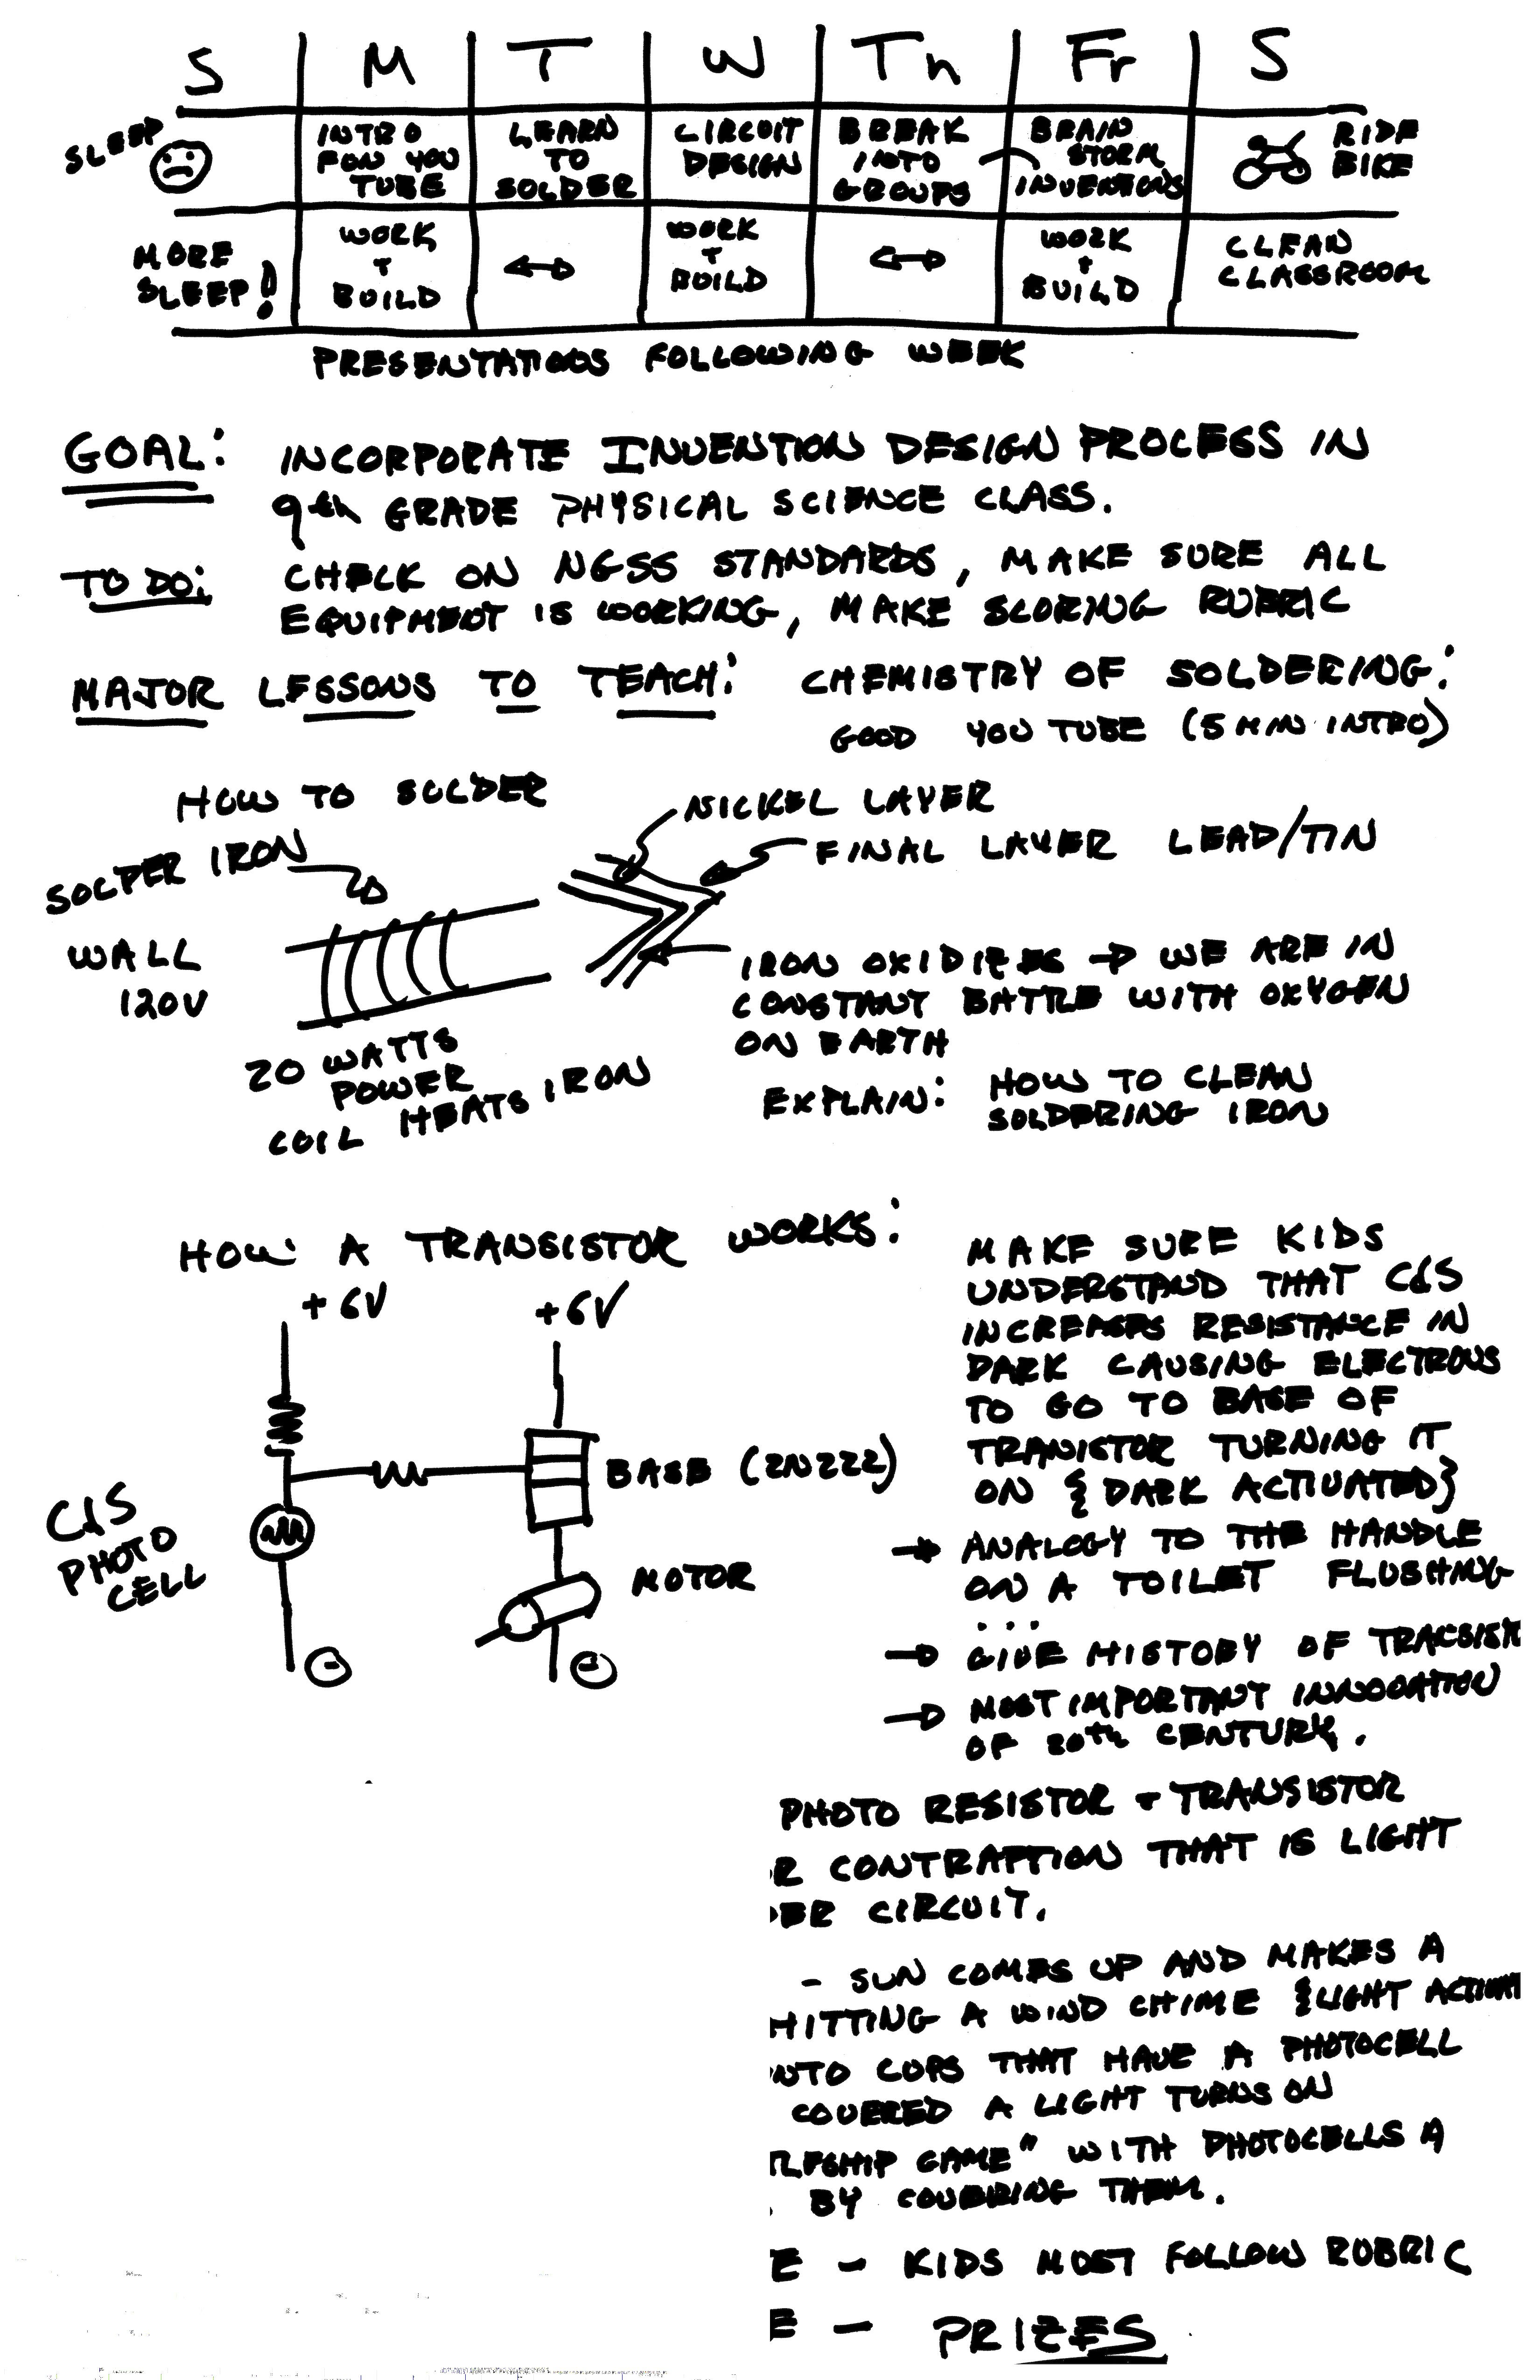 S M T W Th Fr S
SLEEP
INTRO
FUN YOU
TUBE
LEARN
TO
SOLDER
CIRCUIT
DESIGN
BREAK
INTO
GROUPS
BRAIN
STORM
INVENTIONS
RIDE
BIKE
MORE
SLEEP!
WORK
+
BUILD
WORK
+
BUILD
WORK
+
BUILD
CLEAN
CLASSROOM
PRESENTATIONS FOLLOWING WEEK
GOAL: INCORPORATE INVENTION DESIGN PROCESS IN
9th GRADE PHYSICAL SCIENCE CLASS.
TO DO: CHECK ON NGSS STANDARDS, MAKE SURE ALL
EQUIPMENT IS WORKING, MAKE SCORING RUBRIC
MAJOR LESSONS TO TEACH: CHEMISTRY OF SOLDERING:
GOOD YOU TUBE (5 MIN INTRO)
HOW TO SOLDER
NICKEL LAYER
FINAL LAYER LEAD/TIN
SOLDER IRON
WALL
120V
IRON OXIDIZES → WE ARE IN
CONSTANT BATTLE WITH OXYGEN
ON EARTH
20 WATTS
POWER
COIL HEATS IRON
EXPLAIN: HOW TO CLEAN
SOLDERING IRON
HOW A TRANSISTOR WORKS:
+6V
+6V
BASE (2N222)
CdS
PHOTO
CELL
MOTOR
-
-
MAKE SURE KIDS
UNDERSTAND THAT CdS
INCREASES RESISTANCE IN
DARK CAUSING ELECTRONS
TO GO TO BASE OF
TRANISTOR TURNING IT
ON {DARK ACTIVATED}
→ ANALOGY TO THE HANDLE
ON A TOILET FLUSHING
...
→ GIVE HISTORY OF TRANSIST
→ MOST IMPORTANT INNOVATION
OF 20th CENTURY.
PHOTO RESISTOR + TRANSISTOR
R CONTRAPTION THAT IS LIGHT
ER CIRCUIT.
- SUN COMES UP AND MAKES A
HITTING A WIND CHIME {LIGHT ACTIVAT
NTO CUPS THAT HAVE A PHOTOCELL
COVERED A LIGHT TURNS ON
TLESHIP GAME" WITH PHOTOCELLS A
BY COVERING THEM.
E - KIDS MUST FOLLOW RUBRIC
E - PRIZES